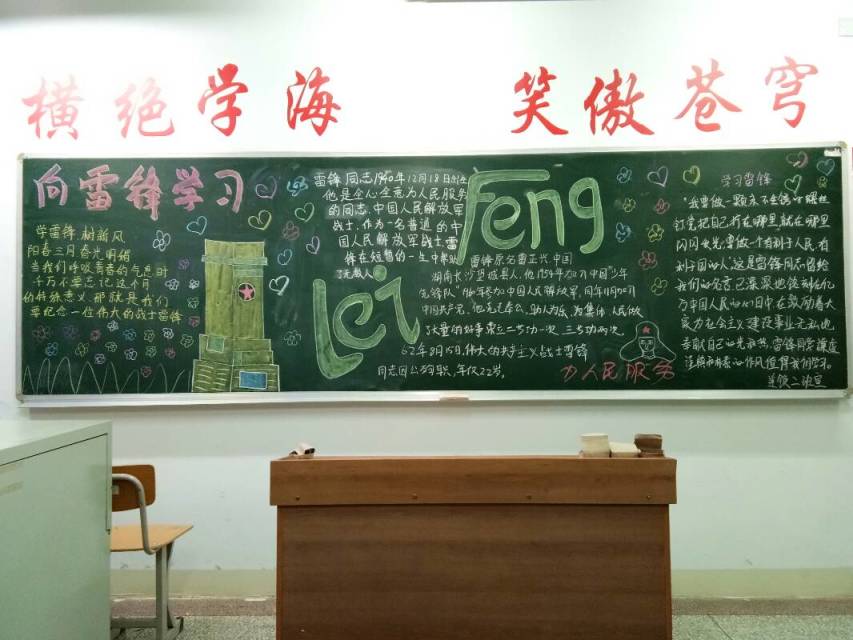 横绝学海 笑傲苍穹
向雷锋学习
学雷锋 树新风
阳春三月 春光明媚
当我们呼吸青春的气息时
千万不要忘记这个月
的特殊意义,那就是我们
要纪念一位伟大的战士雷锋
雷锋同志1940年12月18日
他是全心全意为人民服务
的同志,中国人民解放军
战士,作为一名普通的中
国人民解放军战士,雷
锋在短暂的一生中帮助
了无数人
Lei
Feng
雷锋原名雷正兴,中国
湖南长沙望城县人,他1954年加入中国少年
先锋队"1960年参加中国人民解放军,同年11月加入
中国共产党,他克己奉公,助人为乐,为集体 人民做
了大量的好事,荣立二等功一次,三等功两次,
62年8月15日,伟大的共产主义战士雷锋
同志因公殉职,年仅22岁。
为人民服务
学习雷锋
"我要做一颗永不生锈的螺丝
钉,党把我拧在哪里,就在哪里
闪闪发光,要做一个有利于人民,有
利于国的人"这是雷锋同志留给
我们的
万中国人民的心目中在激励着大
家为社会主义建设事业无私地
奉献自己